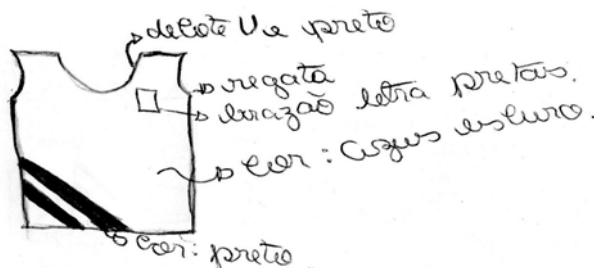 decote U e preto
regata
brazão letra pretas.
cor: azus escuro.
cor: preto